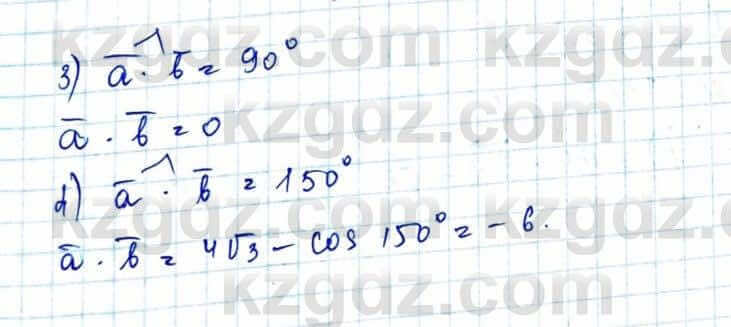 kzgdz.com kzgdz.com
3) a̅ ^ b̅ = 90°
kzgdz.com
a̅ · b̅ = 0
4) a̅ ^ b̅ = 150°
kzgdz.com kzgdz.com
a̅ · b̅ = 4√3 - cos 150° = - 6.
kzgdz.com